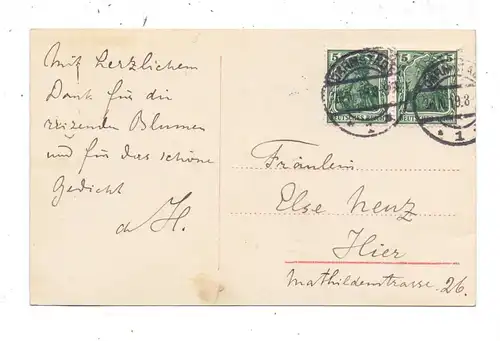 Mit herzlichem
Dank für die
reizenden Blumen
und für das schöne
Gedicht
H.
5 5
DEUTSCHES REICH DEUTSCHES REICH
1 1
Fräulein
Else Menz
Hier
Mathildenstrasse 26.